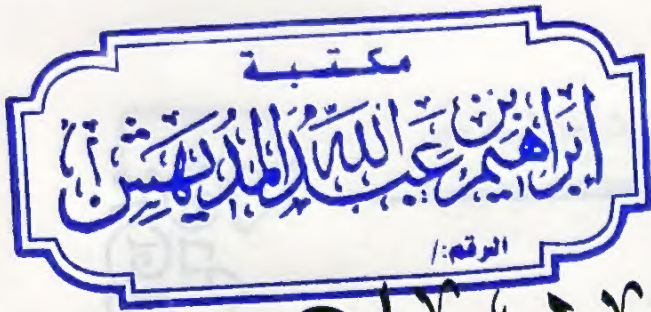 مكتبة
إبراهيم بن عبدالله المديهش
الرقم: /